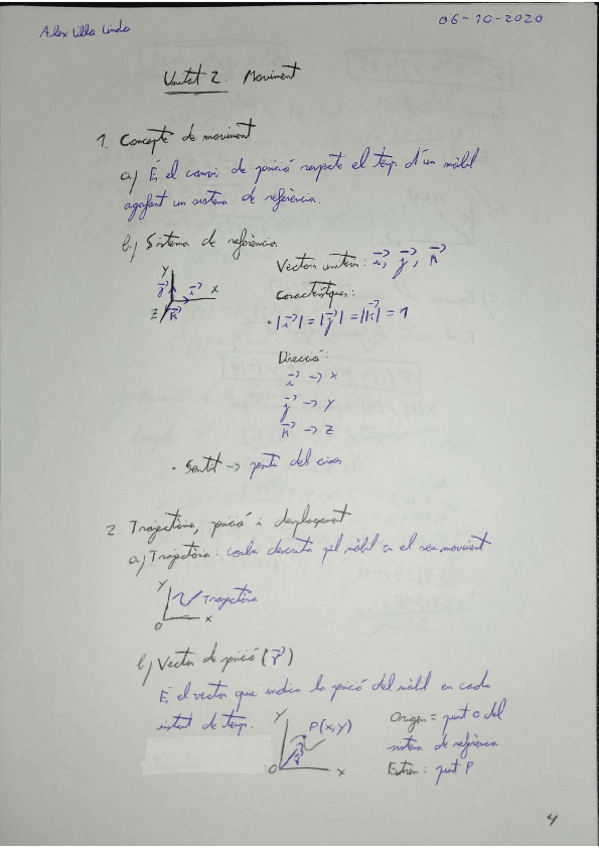 Alex Lilla Linda
06-10-2020
Unitat 2. Moviment
1. Concepte de moviment
a) És el canvi de posició respecte el temps d'un mòbil
agafant un sistema de referència.
b) Sistema de referència
Vectors unitaris: i⃗, j⃗, k⃗
Y
j⃗ i⃗ X
Z k⃗
Característiques:
• |i⃗| = |j⃗| = |k⃗| = 1
Direcció:
i⃗ → X
j⃗ → Y
k⃗ → Z
• Sentit → positiu dels eixos
2. Trajectòria, posició i desplaçament
a) Trajectòria: corba descrita pel mòbil en el seu moviment
Y
Trajectòria
O X
b) Vector de posició (r⃗)
És el vector que indica la posició del mòbil en cada
instant de temps.
Y P(x,y)
r⃗
O X
Origen = punt O del
sistema de referència
Extrem: punt P
4